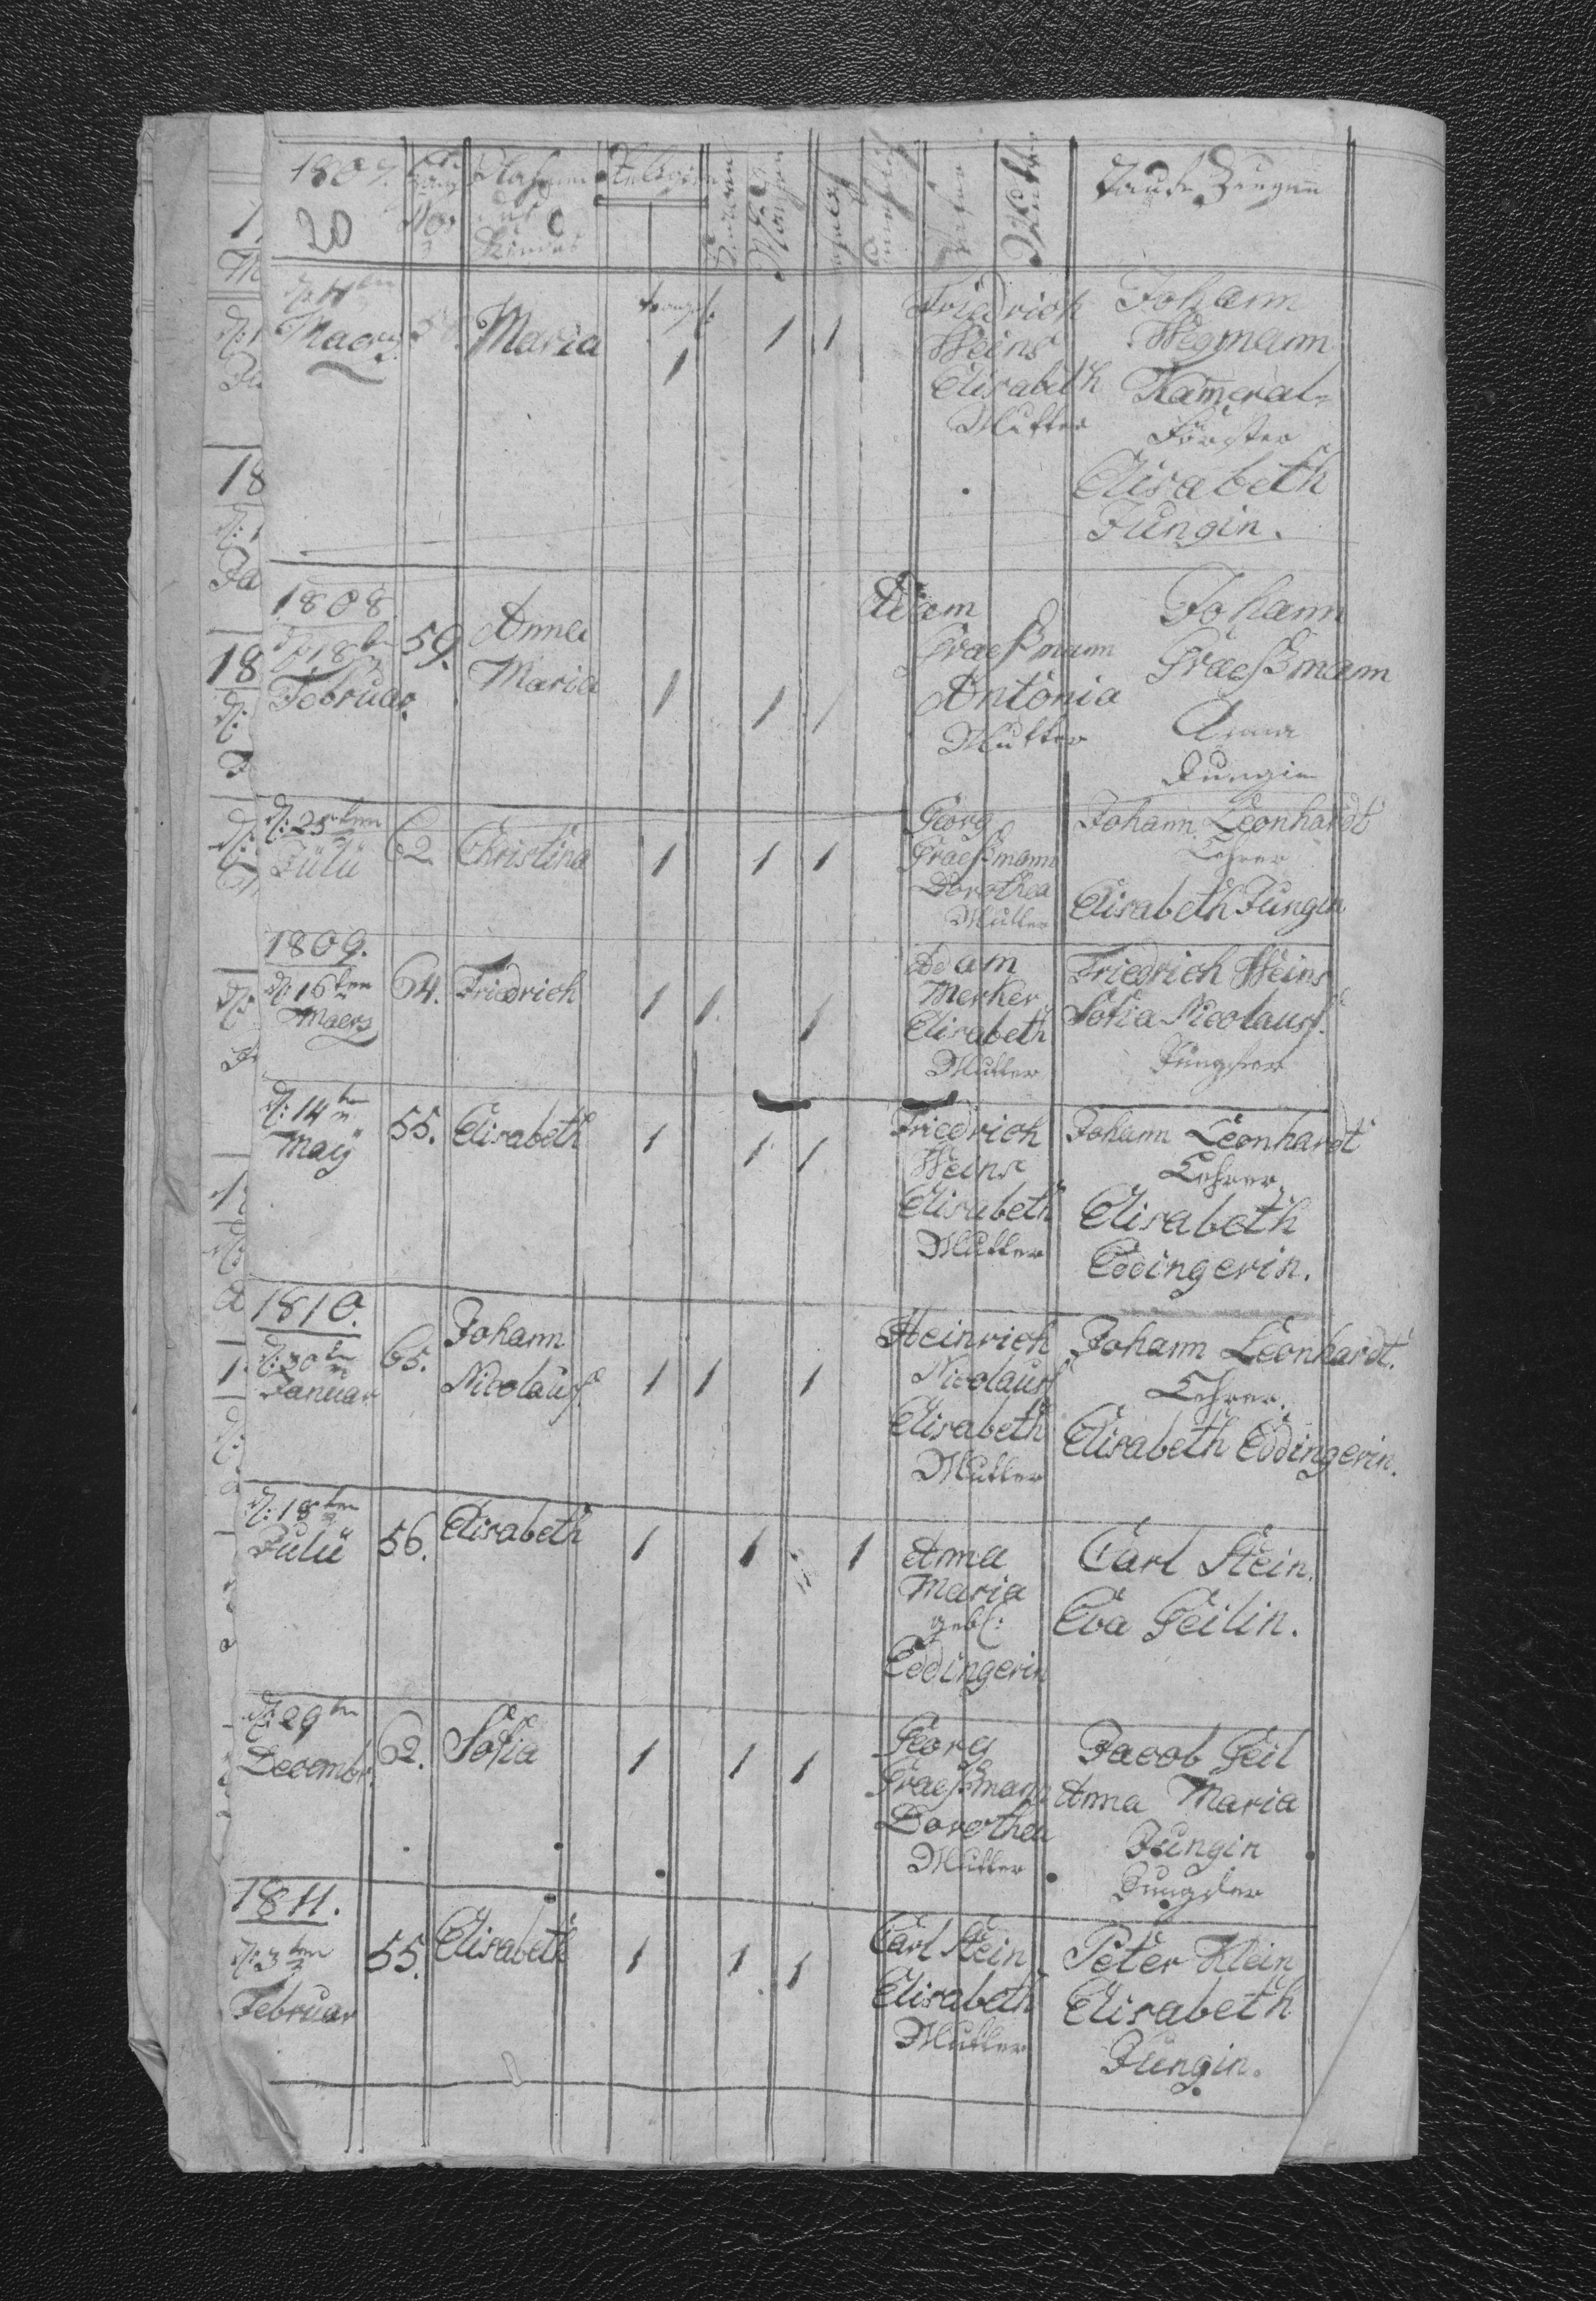 1807.
20
Nahmen des Kindes
Religion
Mädchen
Vater
Mutter
Taufe Zeugen
Maerz
Maria
1
1
1
Friedrich
Weins
Elisabeth
Mutter
Johann
Wegmann
Kameral-
Förster
Elisabeth
Jungin.
1808.
18ten
Februar.
59.
Anna
Maria
1
1
1
Adam
Graeßmann
Antonia
Mutter
Johann
Graeßmann
Anna
Jungin
d: 25ten
Julii
62.
Christina
1
1
1
Georg
Graeßmann
Dorothea
Mutter
Johann Leonhardt
Lehrer
Elisabeth Jungin
1809.
d: 16ten
Maerz
64.
Friedrich
1
1
1
Adam
Merker
Elisabeth
Mutter
Friedrich Weins
Sofia Nicolauß.
Jungfer
d: 14ten
Maij
55.
Elisabeth
1
1
1
Friedrich
Weins
Elisabeth
Mutter
Johann Leonhardt
Lehrer
Elisabeth
Eddingerin.
1810.
d: 30ten
Januar
65.
Johann
Nicolauß
1
1
1
Heinrich
Nicolauß
Elisabeth
Mutter
Johann Leonhardt.
Lehrer.
Elisabeth Eddingerin.
d: 18ten
Julii
56.
Elisabeth
1
1
1
Anna
Maria
geb:
Eddingerin
Carl Stein.
Eva Geilin.
d: 29ten
Decembr.
62.
Sofia
1
1
1
Georg
Graeßmann
Dorothea
Mutter
Jacob Geil
Anna Maria
Jungin
Jungfer
1811.
d: 3ten
Februar
55.
Elisabeth
1
1
1
Carl Stein
Elisabeth
Mutter
Peter Klein
Elisabeth
Jungin.